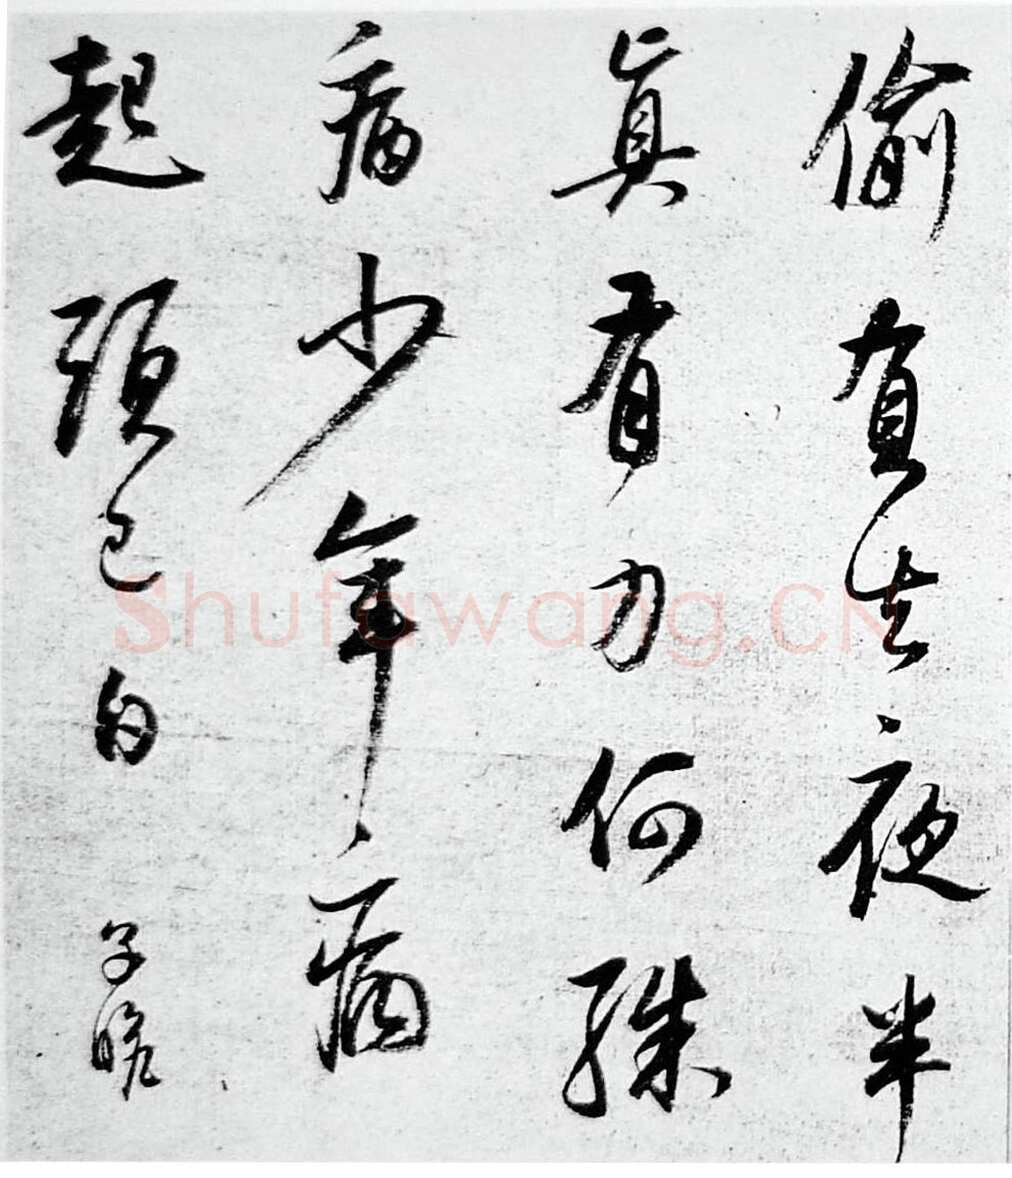 偷負去夜半
眞有力何殊
病少年病
起頭已白 子瞻
Shufawang.CN